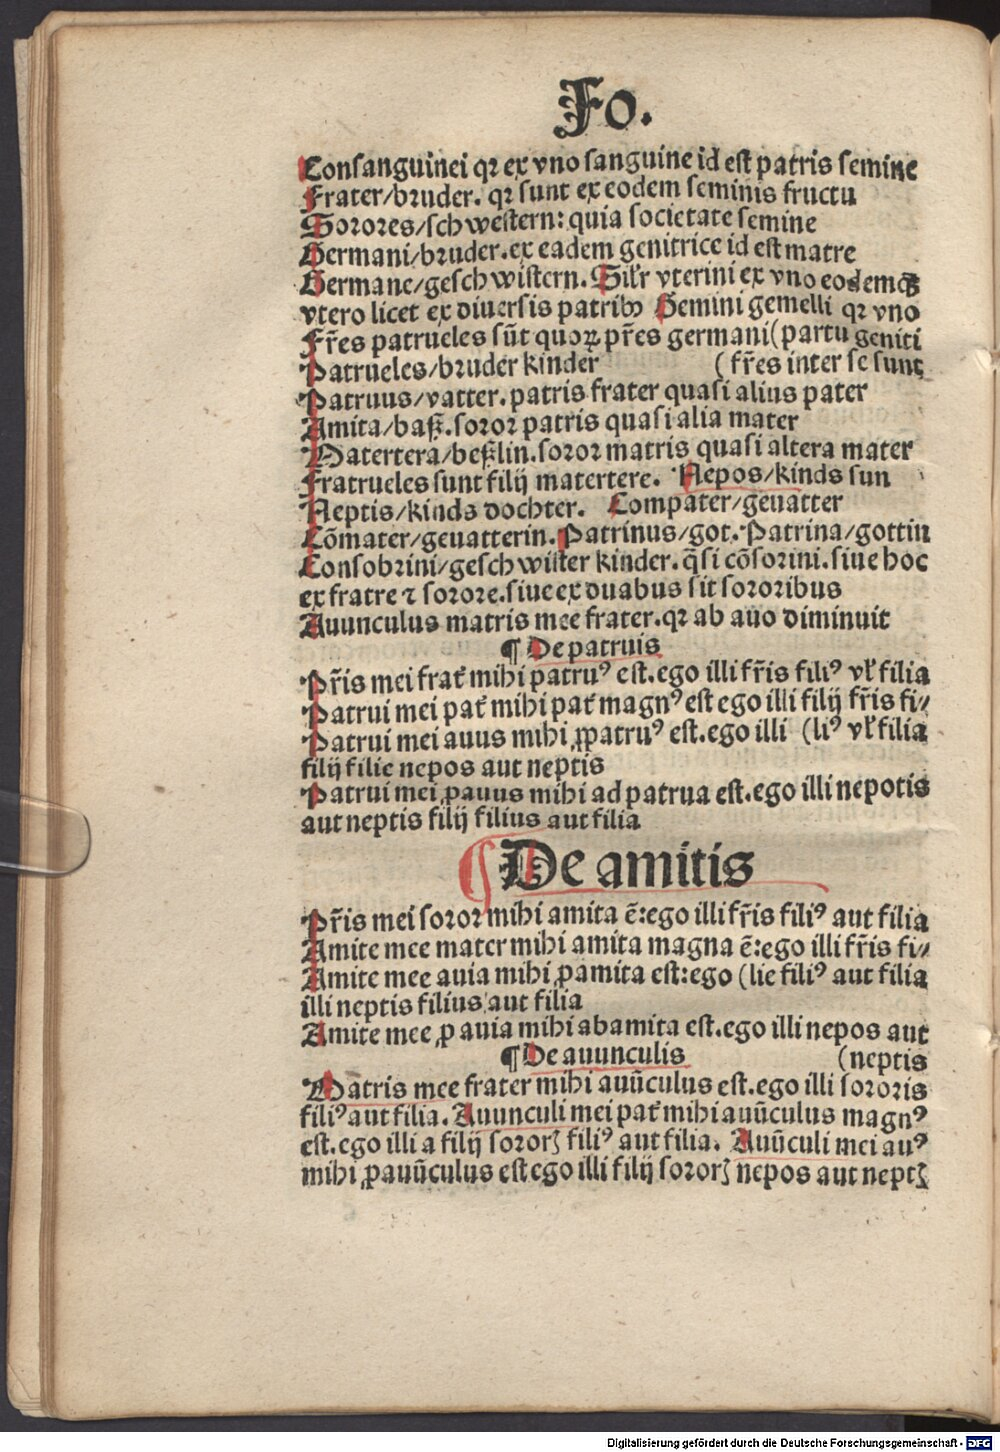 Fo.
Consanguinei qꝛ ex vno sanguine id est patris semine
Frater/bruder. qꝛ sunt ex eodem seminis fructu
Sorores/schwestern: quia societate semine
Germani/bruder.ex eadem genitrice id est matre
Germane/geschwistern. Silr̃ vterini ex vno eodemqꝫ
vtero licet ex diuersis patribꝰ Gemini gemelli qꝛ vno
Fr̃es patrueles sũt quoꝝ pr̃es germani (partu geniti
Patrueles/bruder kinder (fr̃es inter se sunt
Patruus/vatter. patris frater quasi alius pater
Amita/baß.soror patris quasi alia mater
Matertera/beßlin.soror matris quasi altera mater
Fratrueles sunt filij matertere. Nepos/kinds sun
Neptis/kinds dochter. Compater/geuatter
Cõmater/geuatterin.Patrinus/got.Patrina/gottin
Consobrini/geschwister kinder.q̃si cõsorini.siue hoc
ex fratre ⁊ sorore.siue ex duabus sit sororibus
Auunculus matris mee frater.qꝛ ab auo diminuit
¶ De patruis
Pr̃is mei frat̃ mihi patruꝰ est.ego illi fr̃is filiꝰ vl̃ filia
Patrui mei pat̃ mihi pat̃ magnꝰ est ego illi filij fr̃is fi⸗
Patrui mei auus mihi ꝓpatruꝰ est.ego illi (liꝰ vl̃ filia
filij filie nepos aut neptis
Patrui mei ꝓauus mihi ad patrua est.ego illi nepotis
aut neptis filij filius aut filia
¶ De amitis
Pr̃is mei soror mihi amita ẽ:ego illi fr̃is filiꝰ aut filia
Amite mee mater mihi amita magna ẽ:ego illi fr̃is fi⸗
Amite mee auia mihi ꝓamita est:ego (lie filiꝰ aut filia
illi neptis filius aut filia
Amite mee ꝓauia mihi abamita est.ego illi nepos aut
¶ De auunculis (neptis
Matris mee frater mihi auũculus est.ego illi sororis
filiꝰ aut filia. Auunculi mei pat̃ mihi auũculus magnꝰ
est.ego illi a filij sororꝫ filiꝰ aut filia. Auũculi mei auꝰ
mihi ꝓauũculus est ego illi filij sororꝫ nepos aut neptꝫ
Digitalisierung gefördert durch die Deutsche Forschungsgemeinschaft - DFG